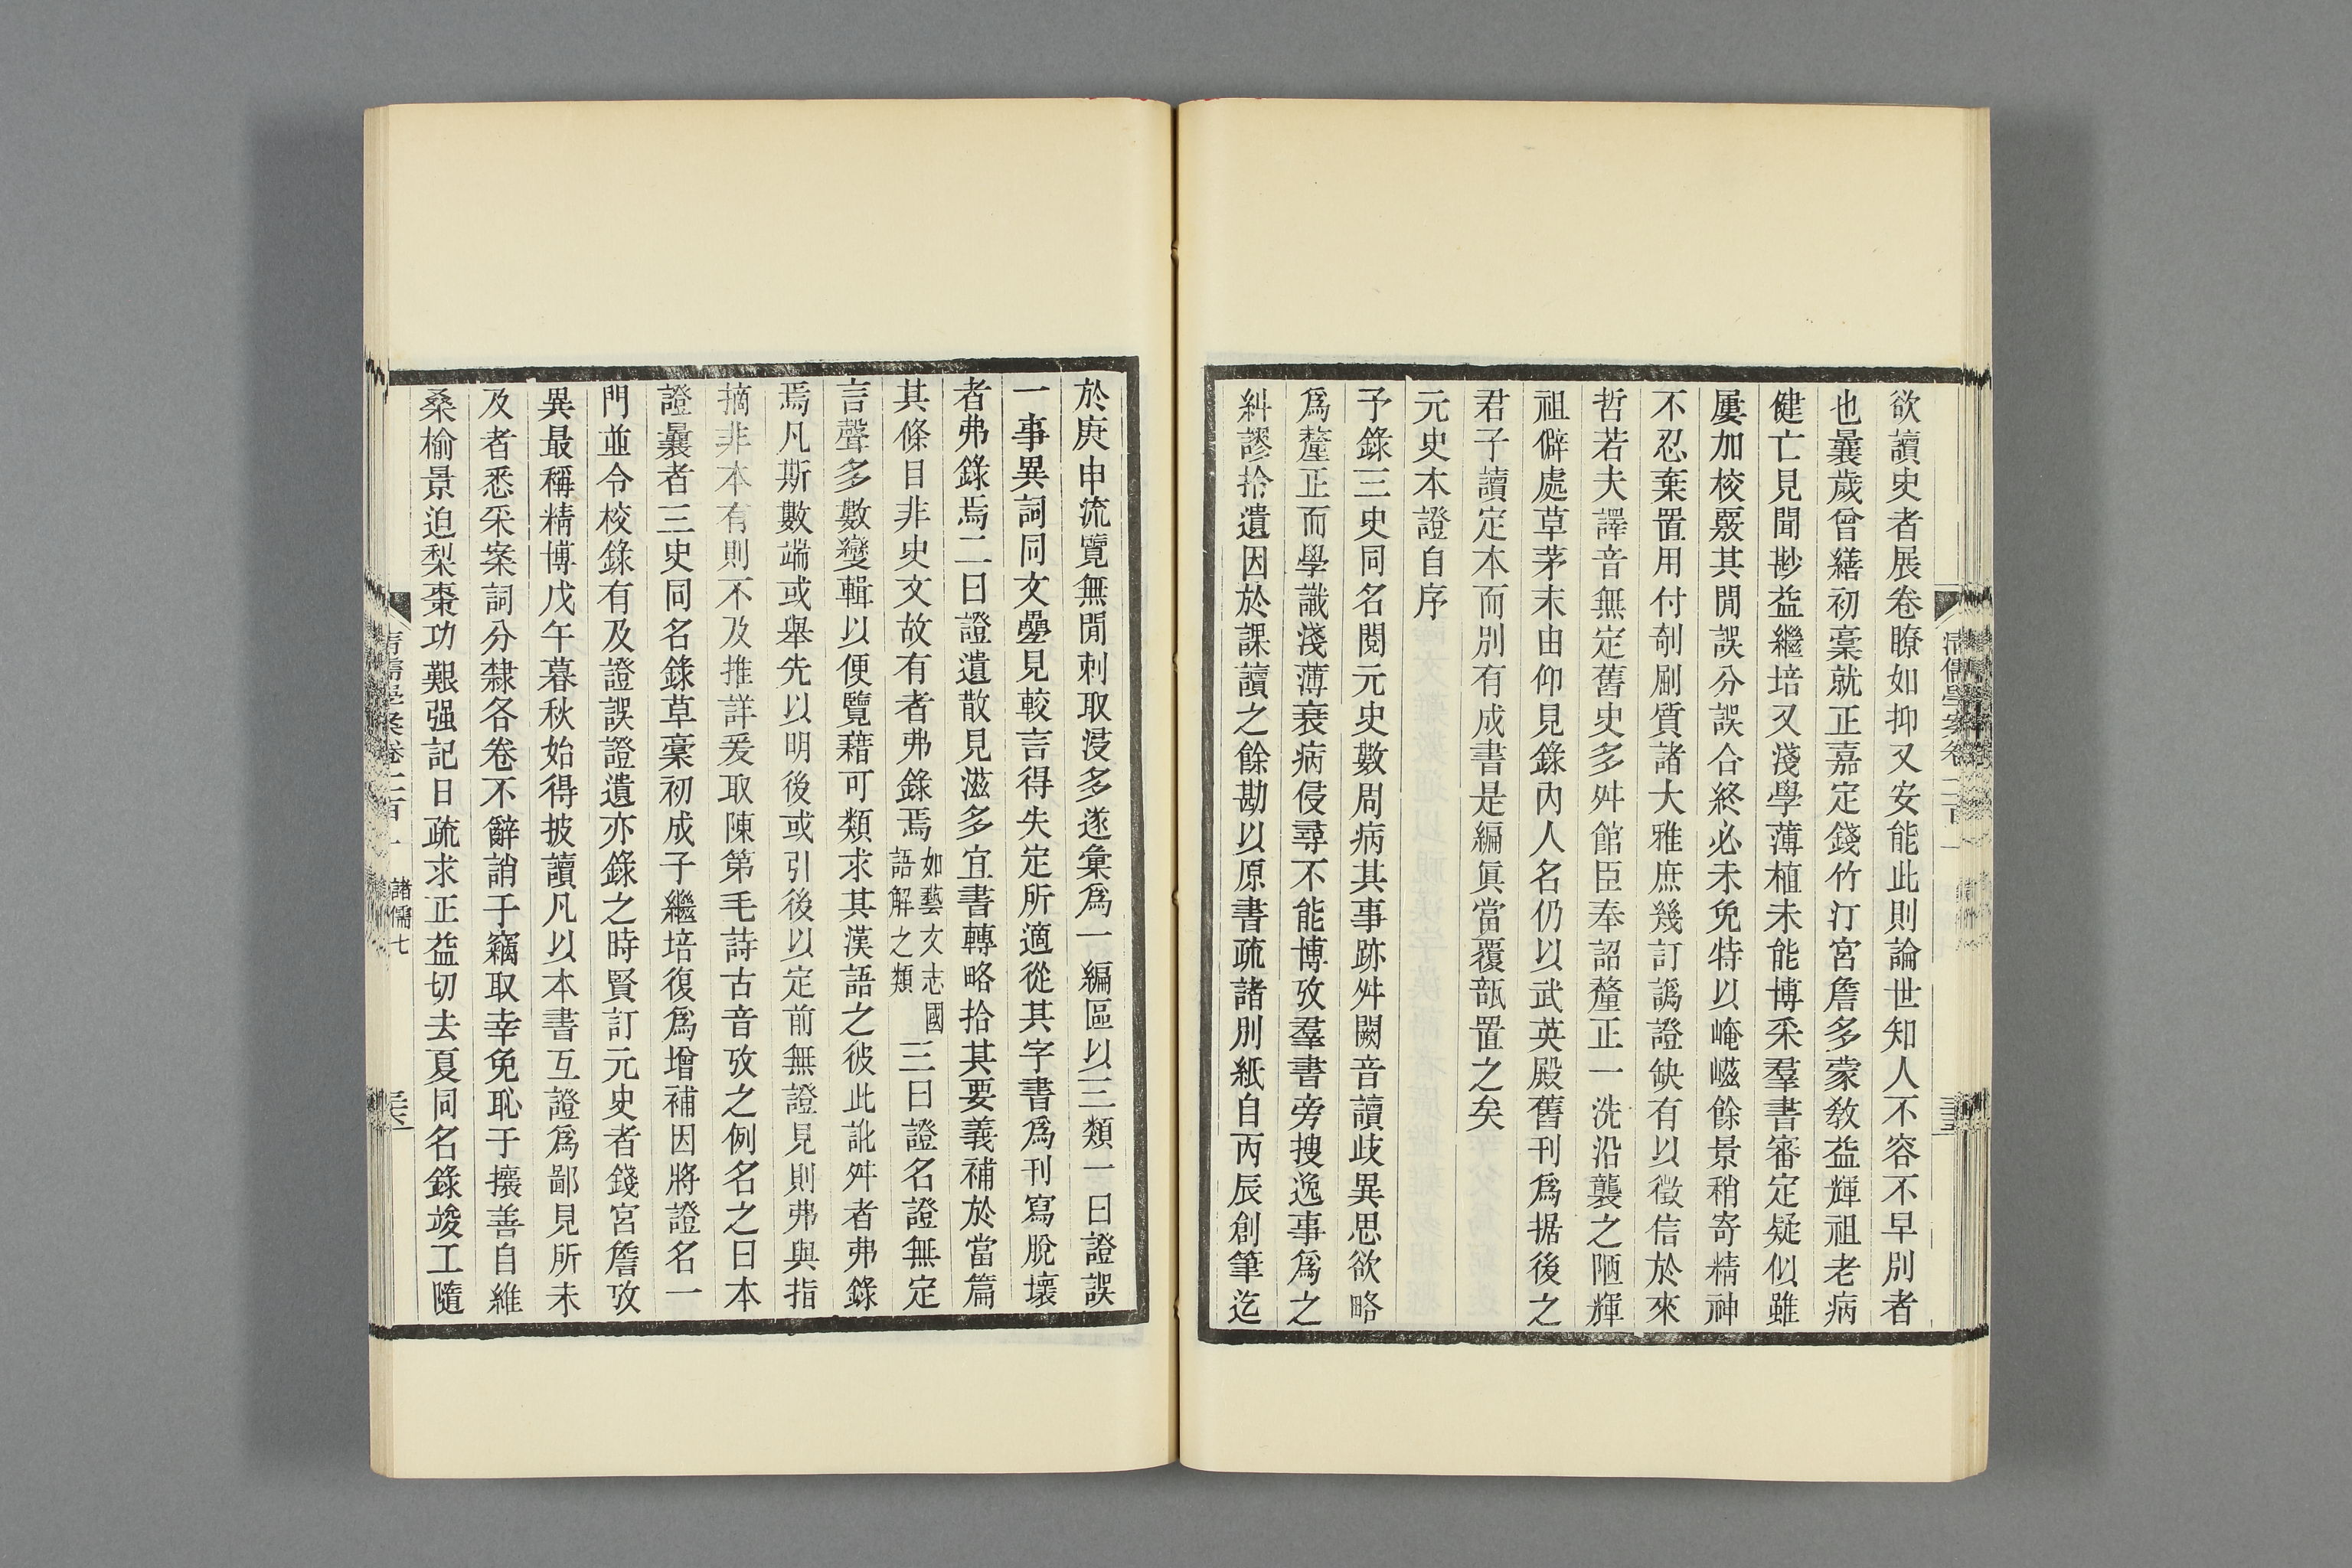 欲讀史者展卷瞭如抑又安能此則論世知人不容不早別者
也曩歲曾繕初稾就正嘉定錢竹汀宮詹多蒙敎益輝祖老病
健亡見聞尟益繼培又淺學薄植未能博采羣書審定疑似雖
屢加校覈其閒誤分誤合終必未免特以崦嵫餘景稍寄精神
不忍棄置用付剞劂質諸大雅庶幾訂譌證缺有以徵信於來
哲若夫譯音無定舊史多舛館臣奉詔釐正一洗沿襲之陋輝
祖僻處草茅末由仰見錄內人名仍以武英殿舊刊爲据後之
君子讀定本而別有成書是編眞當覆瓿置之矣
元史本證自序
予錄三史同名閱元史數周病其事跡舛闕音讀歧異思欲略
爲釐正而學識淺薄衰病侵尋不能博攷羣書旁搜逸事爲之
糾謬拾遺因於課讀之餘勘以原書疏諸別紙自丙辰創筆迄
於庚申流覽無閒刺取浸多遂彙爲一編區以三類一曰證誤
一事異詞同文疊見較言得失定所適從其字書爲刊寫脫壞
者弗錄焉二曰證遺散見滋多宜書轉略拾其要義補於當篇
其條目非史文故有者弗錄焉如藝文志國語解之類三曰證名證無定
言聲多數變輯以便覽藉可類求其漢語之彼此訛舛者弗錄
焉凡斯數端或舉先以明後或引後以定前無證見則弗與指
摘非本有則不及推詳爰取陳第毛詩古音攷之例名之曰本
證曩者三史同名錄草稾初成子繼培復爲增補因將證名一
門並令校錄有及證誤證遺亦錄之時賢訂元史者錢宮詹攷
異最稱精博戊午暮秋始得披讀凡以本書互證爲鄙見所未
及者悉采案詞分隸各卷不辭誚于竊取幸免恥于攘善自維
桑榆景迫梨棗功艱强記日疏求正益切去夏同名錄竣工隨
清儒學案卷二百一 諸儒七